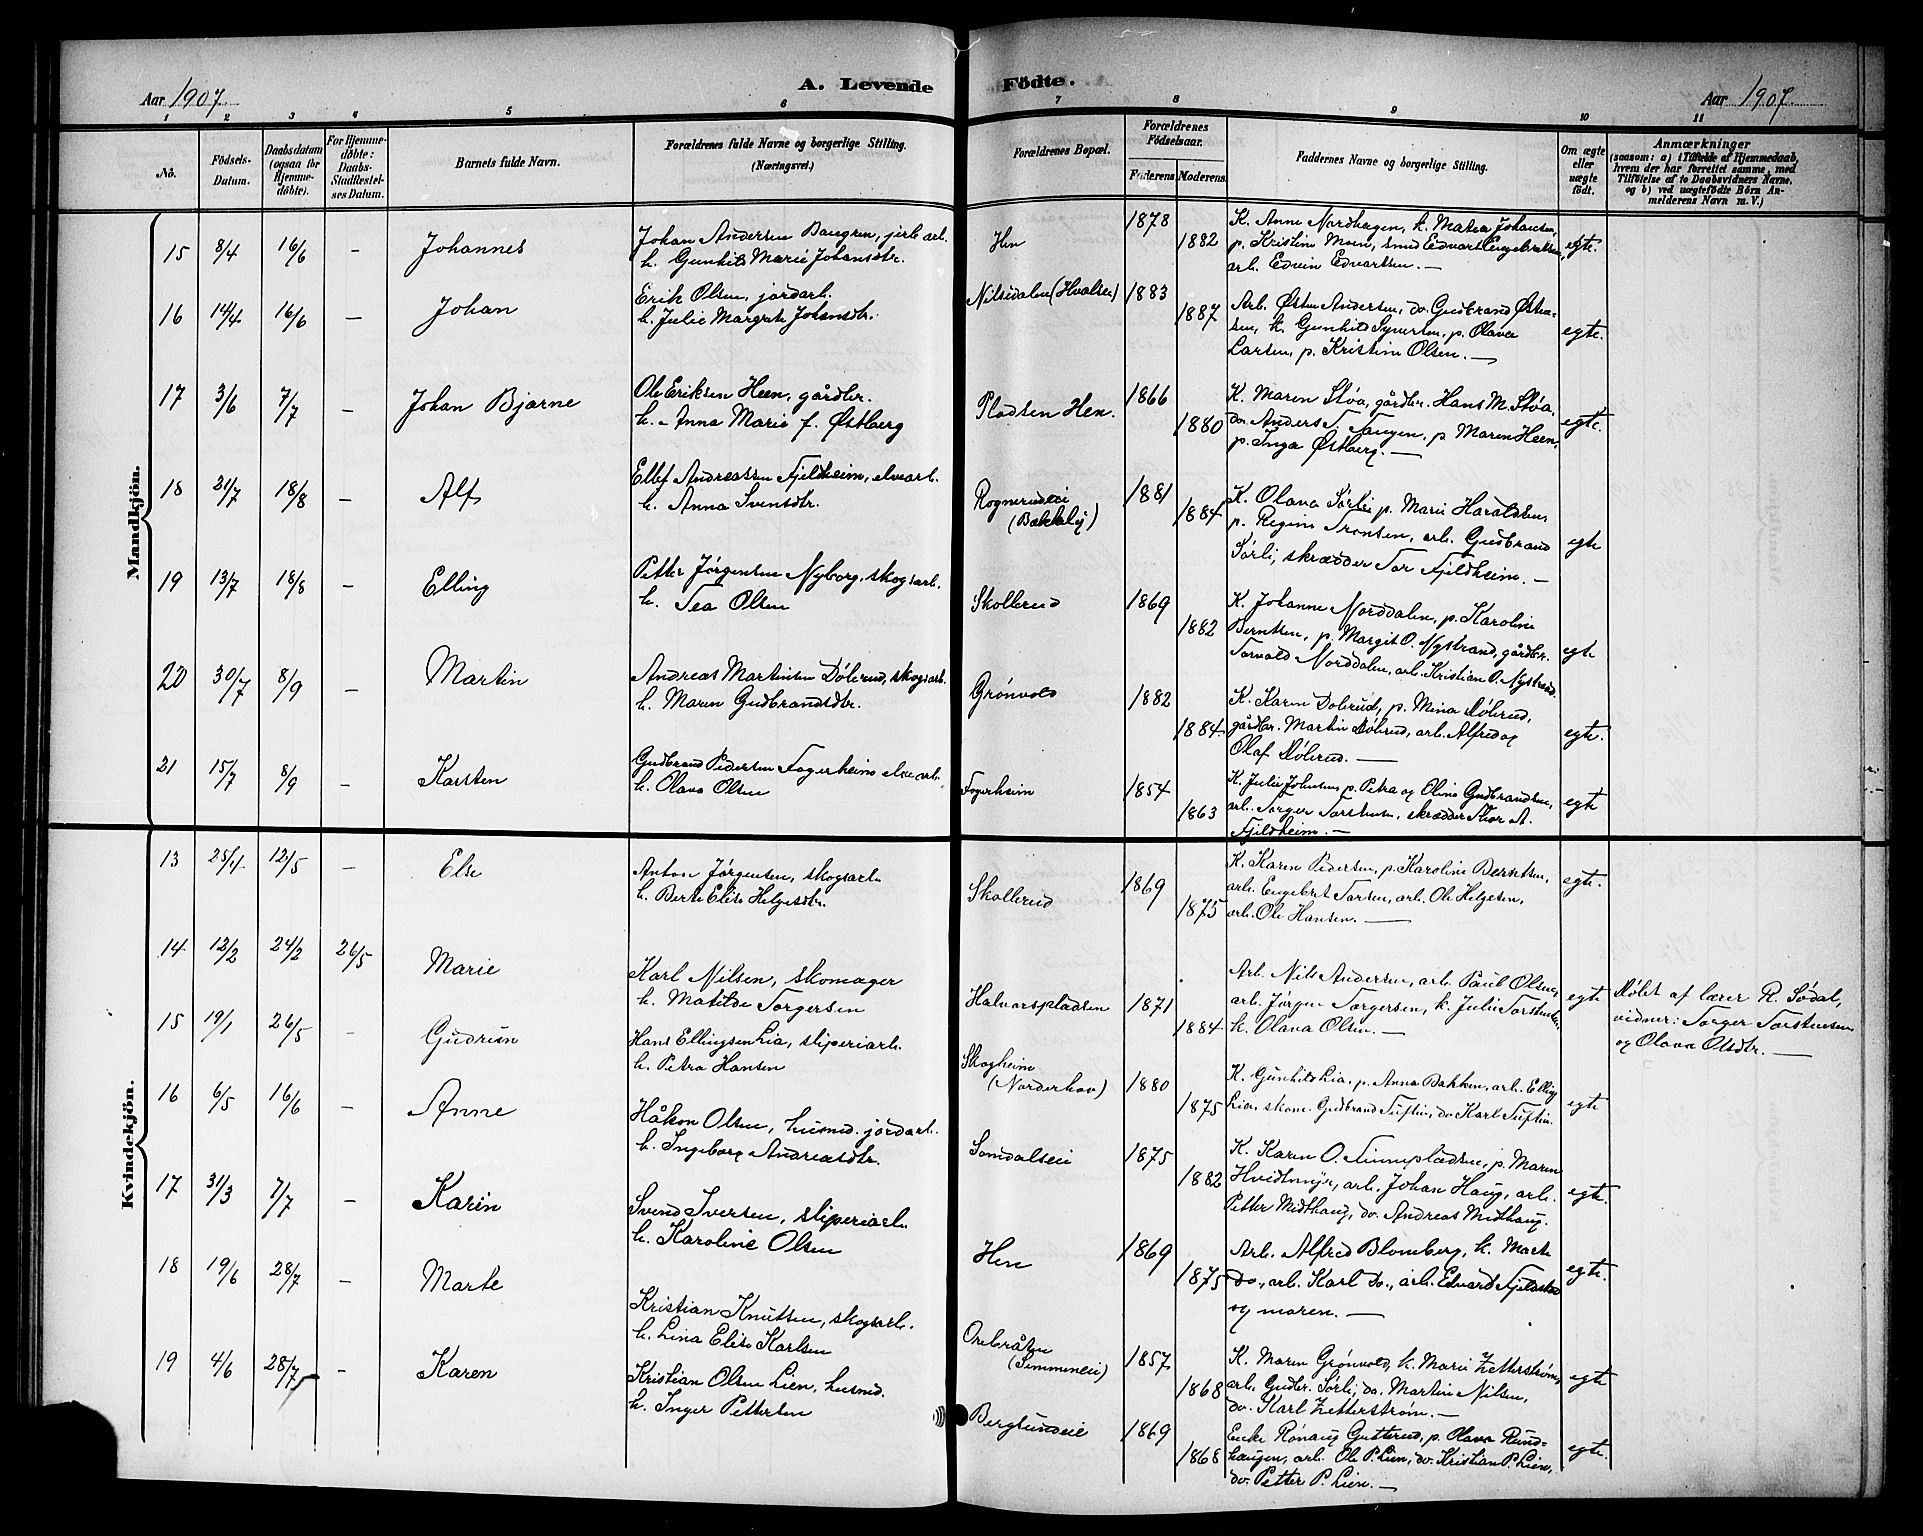 Aar 1907.
A. Levende
Födte.
Aar 1907.
1 2 3 4 5 6 7 8 9 10 11
No.
Födsels-
Datum.
Daabsdatum
(ogsaa for
Hjemme-
döbte).
For Hjemme-
döbte:
Daabs-
Stadfæstel-
ses Datum.
Barnets fulde Navn.
Forældrenes fulde Navne og borgerlige Stilling.
(Næringsvei.)
Forældrenes Bopæl.
Forældrenes
Födselsaar.
Faderens. Moderens.
Faddernes Navne og borgerlige Stilling.
Om ægte
eller
uægte
födt.
Anmærkninger
(saasom: a) i Tilfælde af Hjemmedaab,
hvem der har forrettet samme, med
Tilföielse af to Daabsvidners Navne,
og b) ved uægtefödte Börn An-
melderens Navn m. V.)
Mandkjön.
15 8/4 16/6 — Johannes
Johan Andersen Baugen, jerb. arb.
h. Gunhild Marie Johansdtr.
Hen
1878
1882
K. Anne Nordhagen, k. Matea Johansen,
p. Kristine Moen, smed Edvart Engebretsen,
arb. Edvin Edvartsen. —
egte.
16 14/4 16/6 — Johan
Erik Olsen, jordarb.
h. Julie Margrete Johansdtr.
Nilsedalen (Hvalsen)
1883
1887
Arb. Østen Andersen, do. Gudbrand Østen-
sen, k. Gunhild Syversen, p. Olava
Larsen, p. Kristine Olsen. —
egte.
17 3/6 7/7 — Johan Bjarne
Ole Eriksen Heen, gårdbr.
h. Anna Marie f. Østberg
Pladsen Hen.
1866
1880
K. Maren Støa, gårdbr. Hans M. Støa,
do. Anders T. Tangen, p. Maren Heen,
p. Inga Østberg. —
egte.
18 21/7 18/8 — Alf
Ellef Andreassen Fjeldheim, elvearb.
h. Anna Svensdtr.
Rognerudeie
(Bakkeby)
1881
1884
K. Olava Sørli, p. Marie Haraldsen,
p. Regine Tronsen, arb. Gudbrand
Sørli, skrædder Tor Fjeldheim. —
egte
19 13/7 18/8 — Elling
Petter Jørgensen Nyborg, skogsarb.
h. Tea Olsen
Skollerud
1869
1882
K. Johanne Norddalen, p. Karoline
Berntsen, p. Margit O. Nystrand, gårdbr.
Torvald Norddalen, arb. Kristian O. Nystrand.
egte
20 30/7 8/9 — Martin
Andreas Martinsen Dølerud, skogsarb.
h. Maren Gudbrandsdtr.
Grønvold
1882
1884.
K. Karen Dølerud, p. Mina Dølerud,
gårdbr. Martin Dølerud, arb. Alfred og
Olaf Dølerud. —
egte.
21 15/7 8/9 — Karsten
Gudbrand Pedersen Fagerheim elvearb.
h. Olava Olsen
Fagerheim
1854
1863
K. Julie Johnsen, p. Petra og Oline Gudbrandsen,
arb. Torger Torstensen, skrædder Thor A.
Fjeldheim. —
egte
Kvindekjön.
13 25/4 12/5 — Else
Anton Jørgensen, skogsarb.
h. Berte Elise Helgesdtr.
Skollerud
1869
1875
K. Karen Pedersen, p. Karoline Berntsen,
arb. Engebret Torsen, arb. Ole Helgesen,
arb. Ole Hansen. —
egte.
14 12/2 24/2 26/5 Marie
Karl Nilsen, skomager
h. Matilde Torgersen
Halvorspladsen
1871
1884.
Arb. Nils Andersen, arb. Paul Olsen,
arb. Jørgen Torgersen, k. Julie Torstensen,
k. Olava Olsen. —
egte
Døbt af lærer R. Sødal,
vidner: Torger Torstensen
og Olava Olsdtr. —
15 19/1 26/5 — Gudrun
Hans Ellingsen Lia, sliperiarb.
h. Petra Hansen
Skogheim
(Norderhov)
1880
1875
K. Gunhild Lia, p. Anna Bakken, arb. Elling
Lien, skom. Gudbrand Tuftin, do Karl Tuftin.
egte
16 6/5 16/6 — Anne
Håkon Olsen, husmd. jordarb.
h. Ingeborg Andreasdtr.
Somdalseie
1875
1882
K. Karen O. Finnepladsen, p. Maren
Hvidtmyr, arb. Johan Haug, arb.
Petter Midthaug, do. Andreas Midthaug.
egte.
17 31/3 7/7 — Karin
Svend Iversen, sliperiarb.
h. Karoline Olsen
Hen
1869
1875
Arb. Alfred Blomberg, k. Marte
do., arb. Karl do., arb. Edvard Fjeldstad
og maren. —
egte.
18 19/6 28/7 — Marte
Kristian Knutsen, skogsarb.
h. Lina Elise Karlsen
Orebråten
(Simmeneie)
1857
1868
K. Maren Grønvold, k. Marie Zetterstrøm,
arb. Gudbr. Sørli, do. Martin Nilsen,
do. Karl Zetterstrøm. —
egte
19 4/6 28/7 — Karen
Kristian Olsen Lien, husmd.
h. Inger Pettersen
Berglundeie
1869
1868
Enke Rønaug Gutterud, p. Olava Rund-
haugen, arb. Ole P. Lien, do. Kristian P. Lien,
do. Petter P. Lien. —
egte.